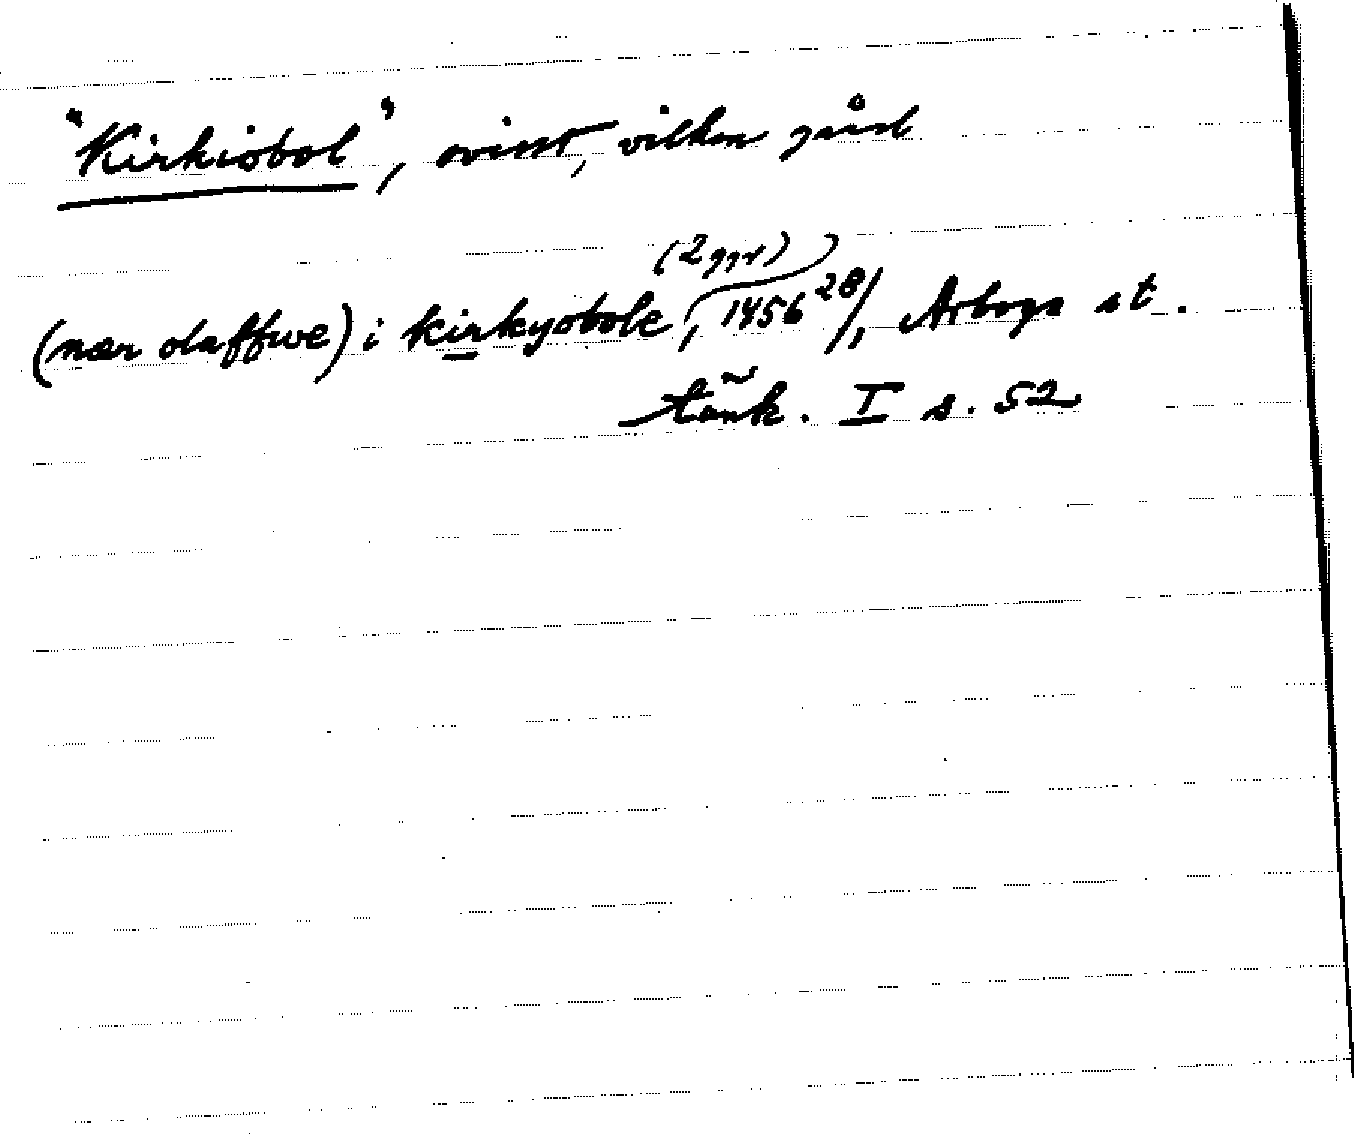 "Kirkiobol", ovisst, vilken gård
(2 ggr)
(nær olaffwe) i kirkyobole, 1456 28/, Arboga st.
tänk. I s. 52